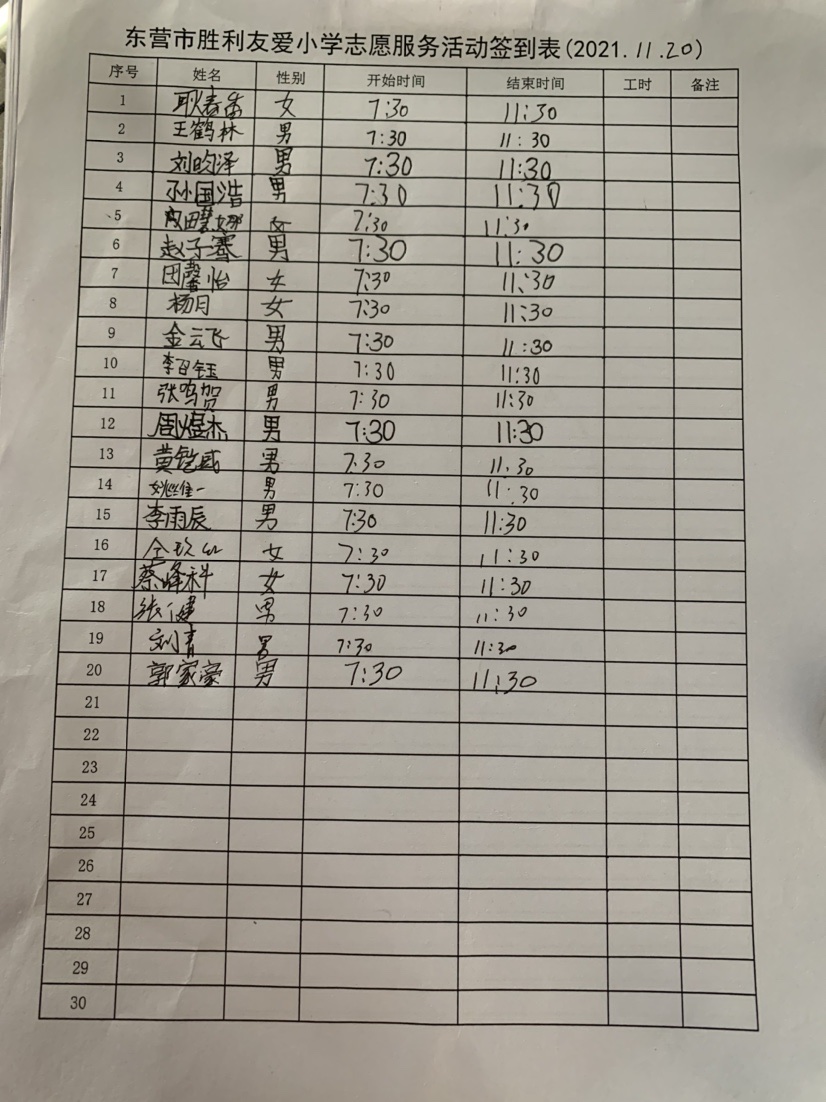 东营市胜利友爱小学志愿服务活动签到表(2021.11.20)
序号 姓名 性别 开始时间 结束时间 工时 备注
1 耿春香 女 7:30 11:30
2 王鹤林 男 7:30 11:30
3 刘昀泽 男 7:30 11:30
4 孙国浩 男 7:30 11:30
5 女 7:30 11:30
6 赵子骞 男 7:30 11:30
7 田馨怡 女 7:30 11:30
8 杨月 女 7:30 11:30
9 金云飞 男 7:30 11:30
10 男 7:30 11:30
11 张鸣贺 男 7:30 11:30
12 周煜杰 男 7:30 11:30
13 黄铠威 男 7:30 11:30
14 姚维一 男 7:30 11:30
15 李雨辰 男 7:30 11:30
16 女 7:30 11:30
17 蔡峰科 女 7:30 11:30
18 张健 男 7:30 11:30
19 刘青 男 7:30 11:30
20 郭家豪 男 7:30 11:30
21
22
23
24
25
26
27
28
29
30